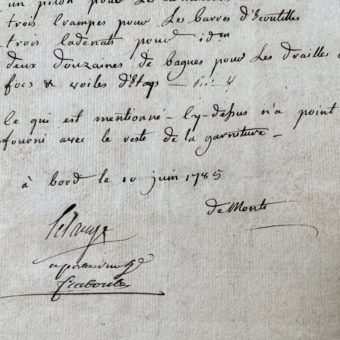 un piton pour Les
trois crampes pour Les barres d'Ecoutilles
trois Cadenats pour idem
deux douzaines de bagues pour Les drailles d
focs & voiles d'Etay
Ce qui est mentionné Cy-dessus n'a point
fourni avec le reste de la garniture
à bord le 10 juin 1785
de Monte